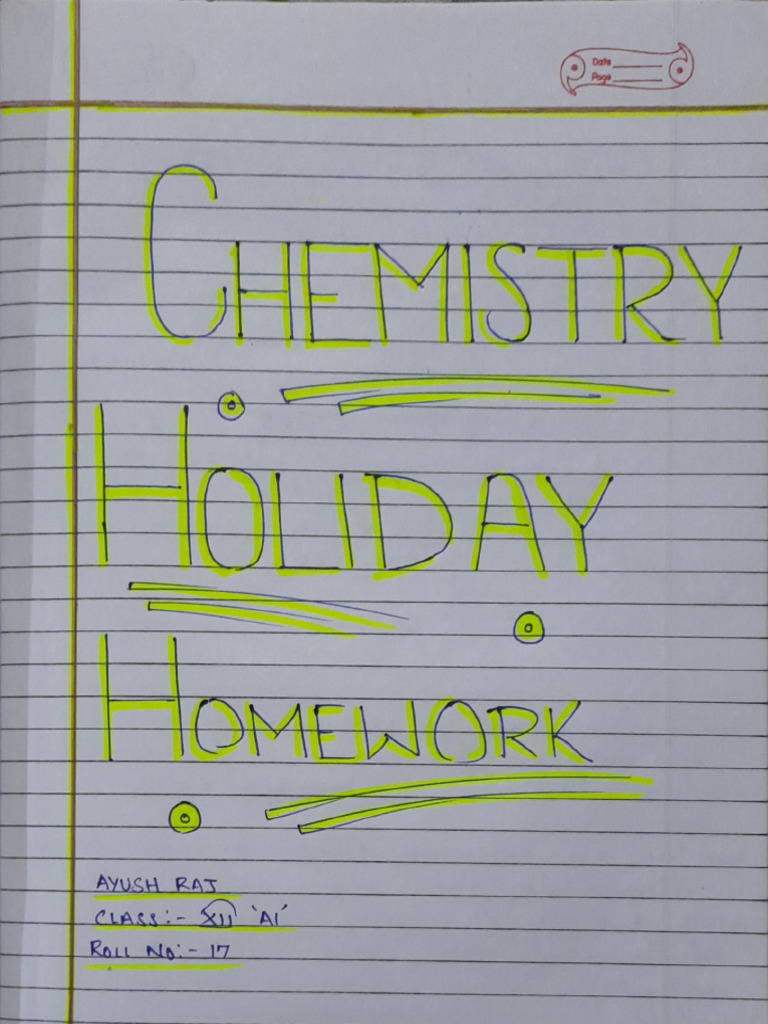 Date
Page
CHEMISTRY
HOLIDAY
HOMEWORK
AYUSH RAJ
CLASS:- XII 'A1'
ROLL NO:- 17